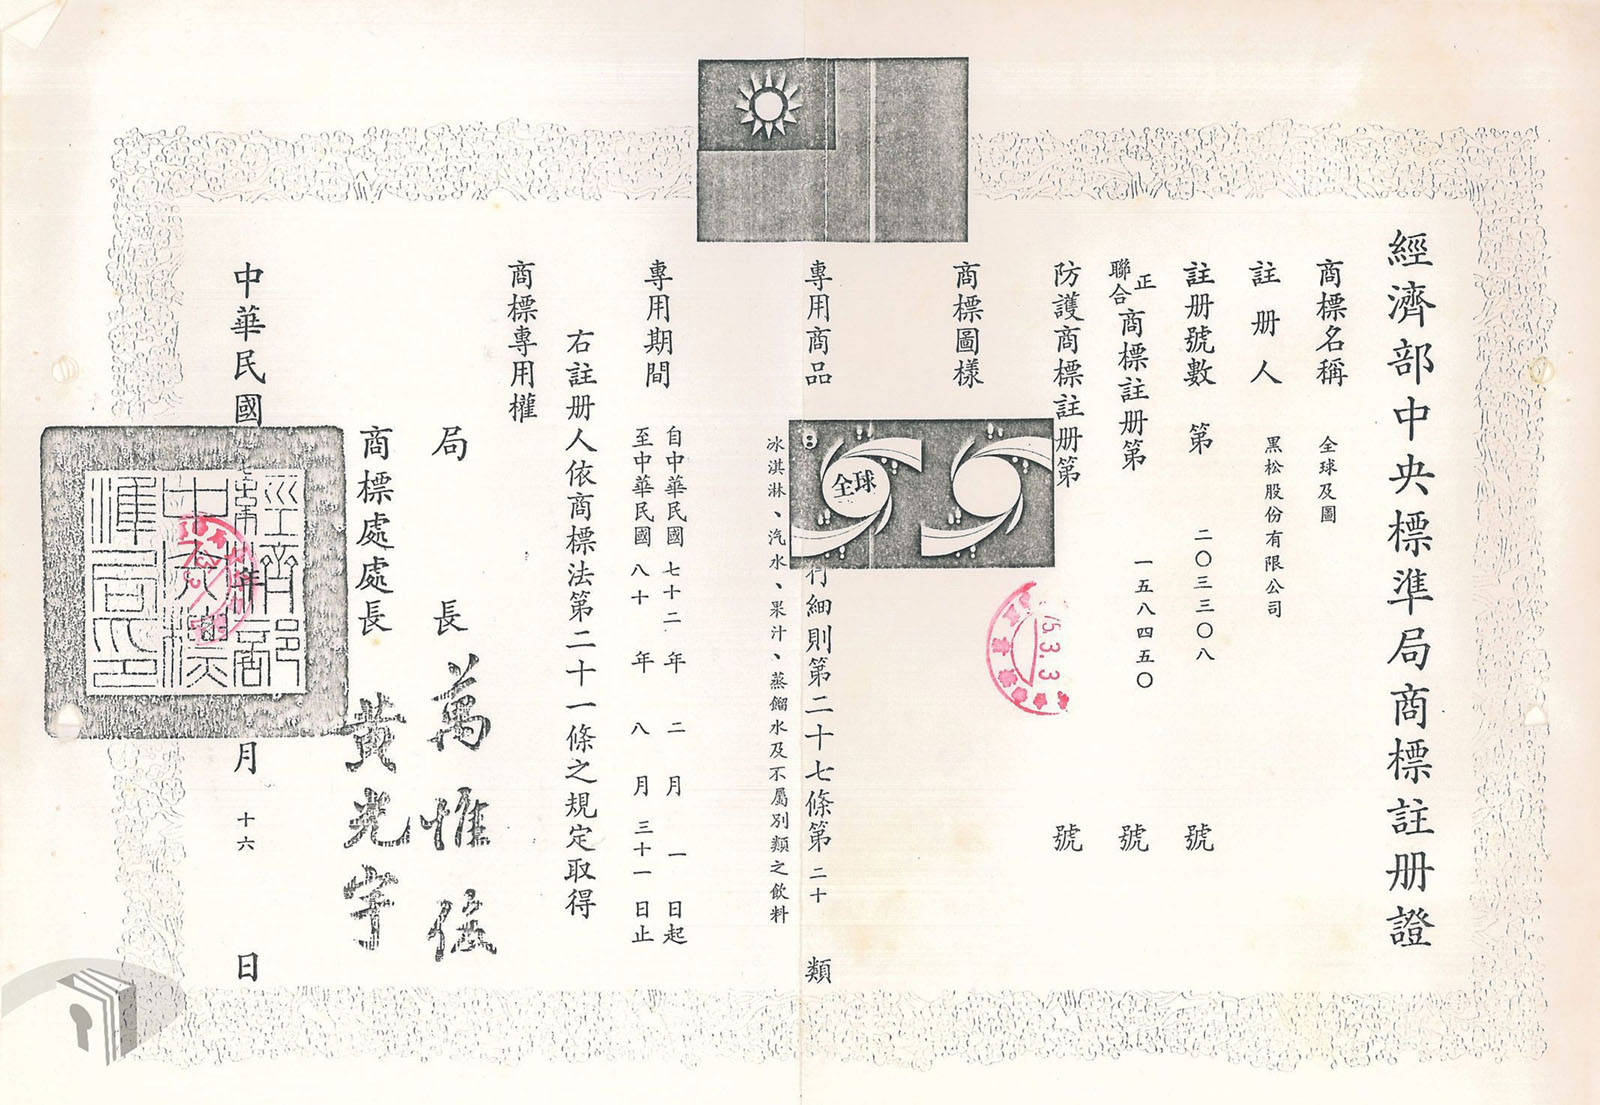 經濟部中央標準局商標註册證
商標名稱 全球及圖
註册人 黑松股份有限公司
註册號數 第 二〇三三〇八 號
正
聯合商標註册第 一五八四五〇 號
防護商標註册第 號
商標圖樣
全球
專用商品
行細則第二十七條第二十類
冰淇淋、汽水、果汁、蒸餾水及不屬別類之飲料
專用期間
自中華民國七十二年二月一日起
至中華民國八十年八月三十一日止
右註册人依商標法第二十一條之規定取得
商標專用權
局長 萬惟伍
商標處處長 黃光宇
中華民國 年 月十六日
75.3.3